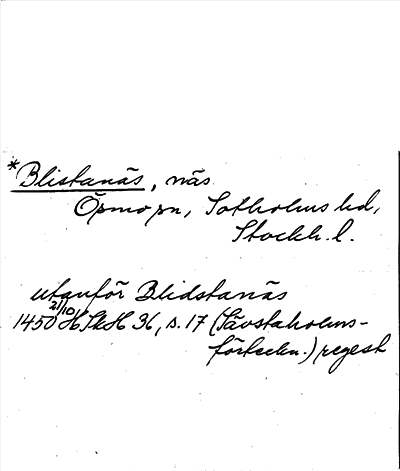 *Blistanäs, näs
Ösmo sn, Sotholms hd,
Stockh. l.
utanför Blidstanäs
1450 21/10 HSkH 36, s. 17 (Sävstaholms-
förteckn.) regest